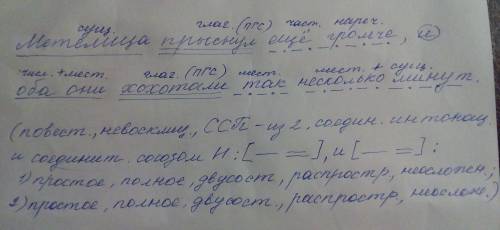 сущ. глаг. (ПГС) част. нареч.
Метелица прыснул ещё громче, и
числ.+мест. глаг. (ПГС) мест. мест. + сущ.
оба они хохотали так несколько минут.
(повест., невосклиц., ССП - из 2, соедин. интонац
и соединит. союзом И: [— =], и [— =]:
1) простое, полное, двусост., распростр, неосложн.;
2) простое, полное, двусост., распростр., неосложн.)